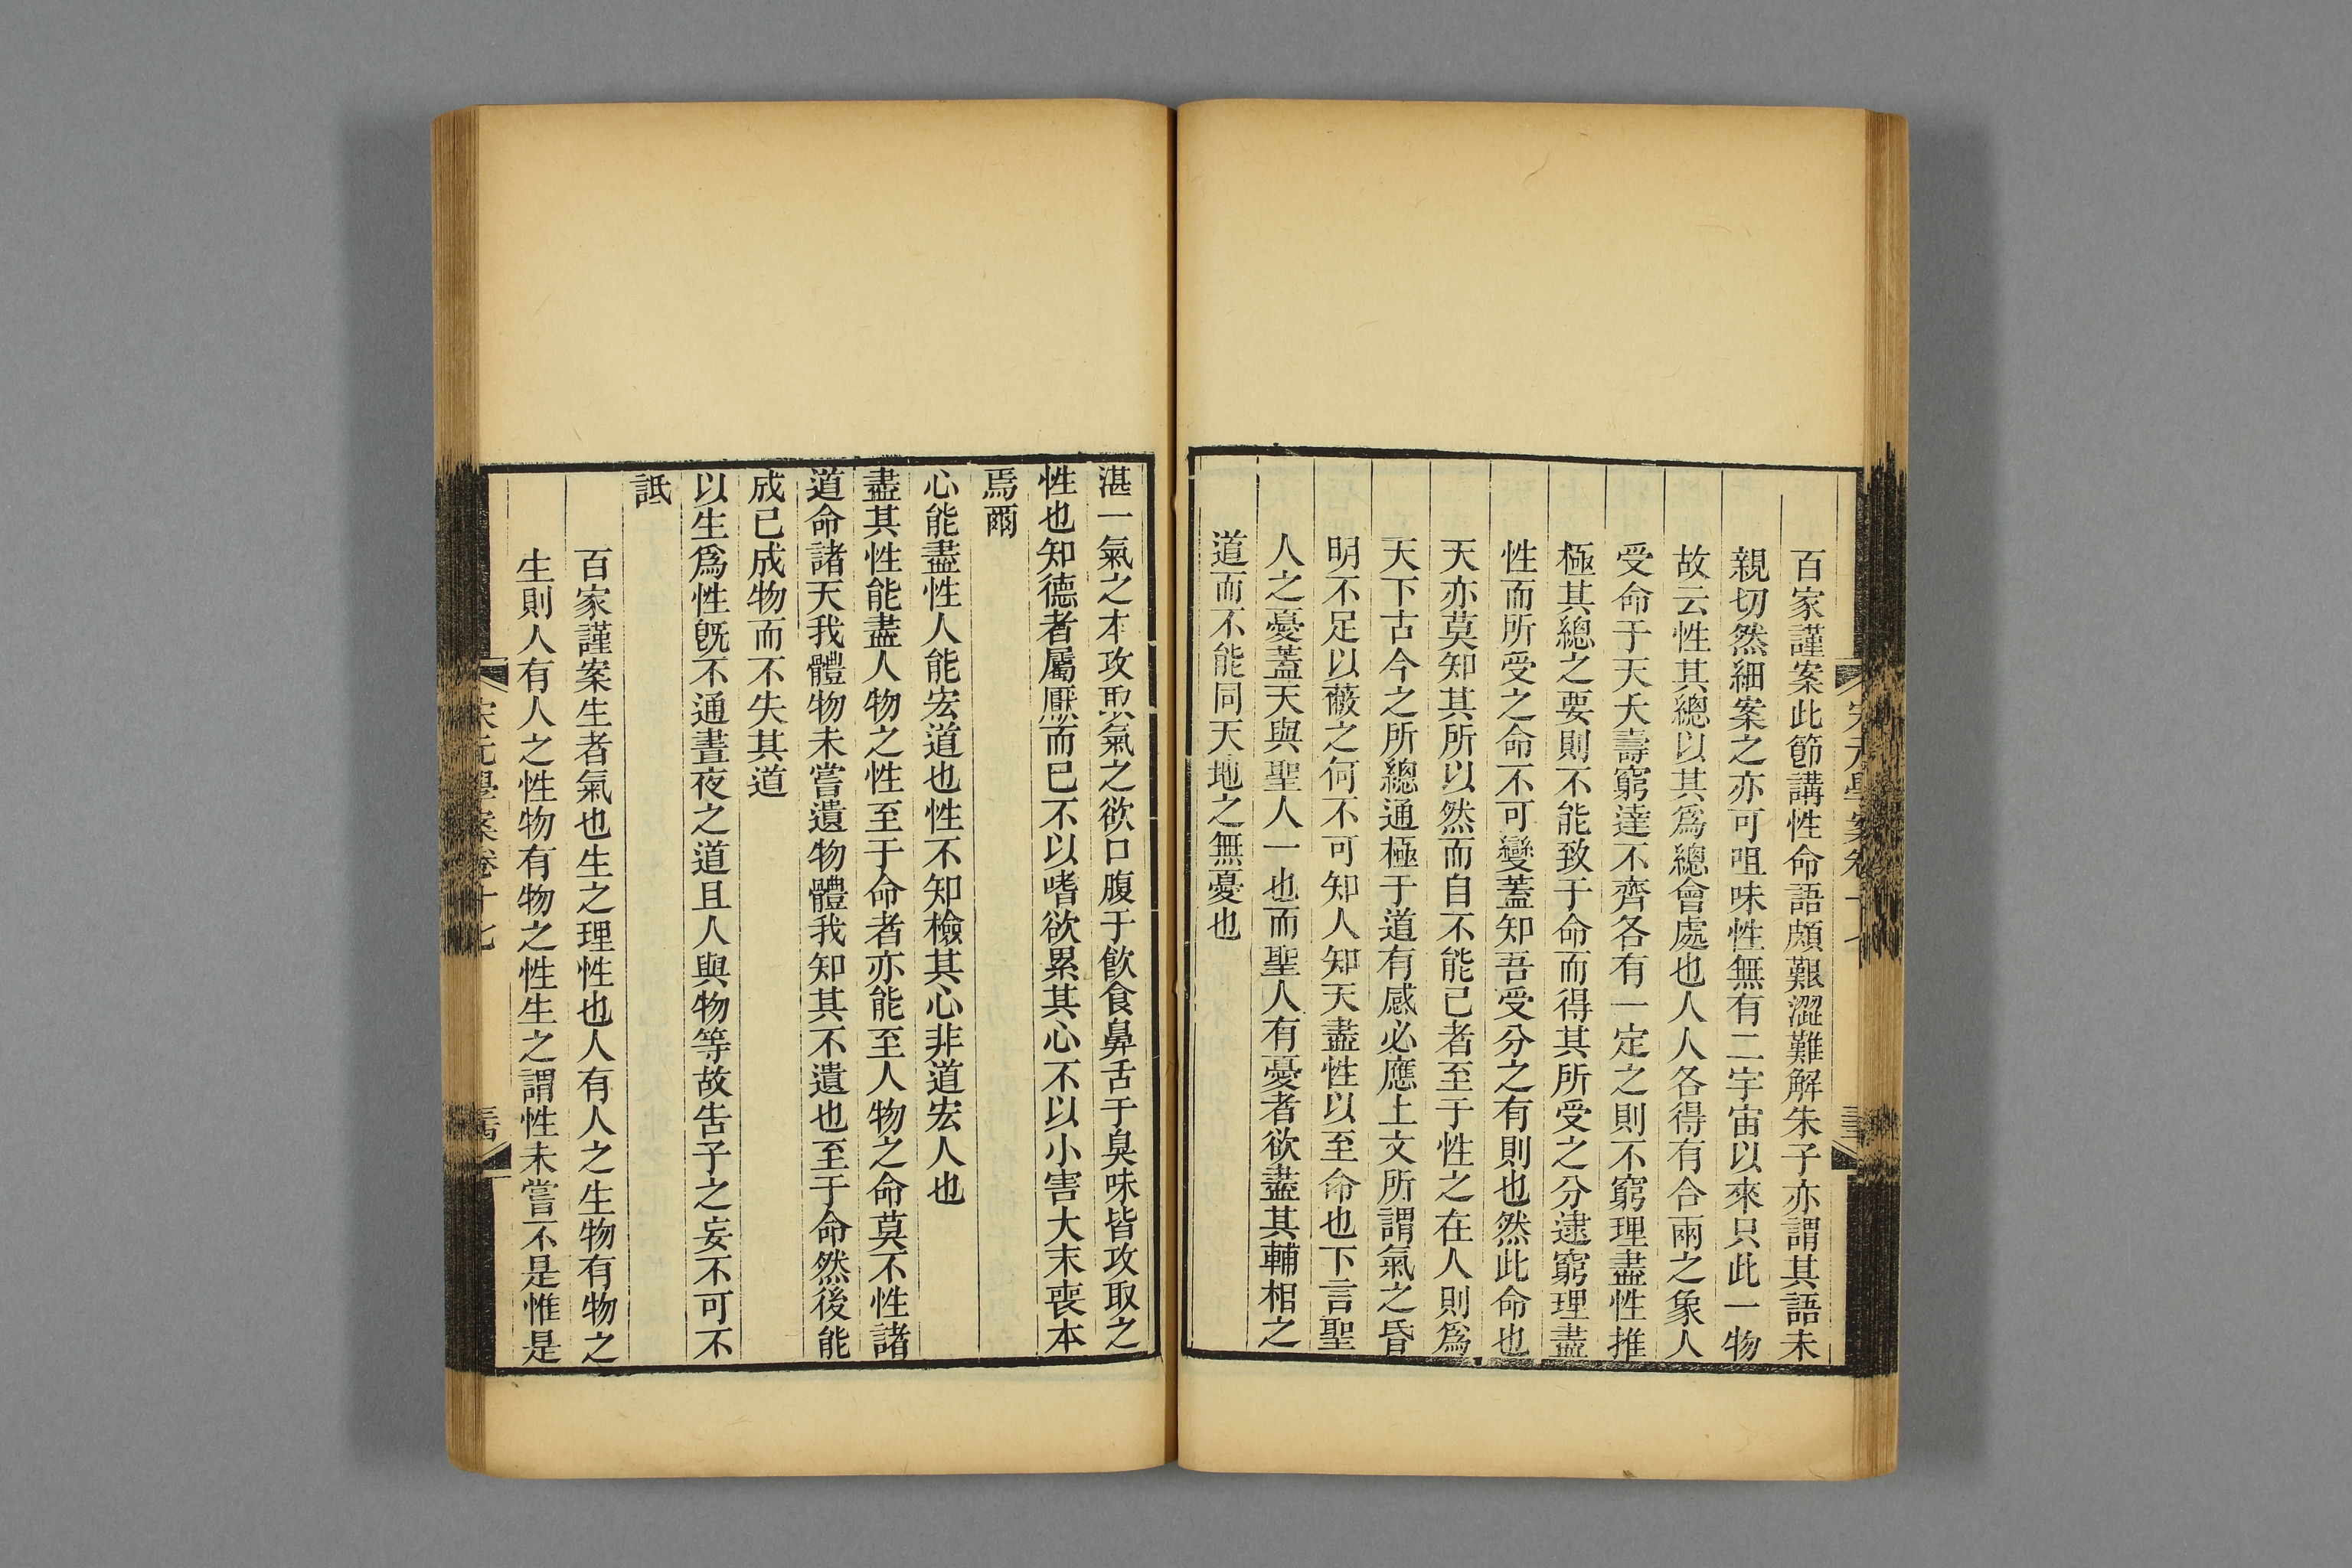 百家謹案此節講性命語頗艱澀難解朱子亦謂其語未
親切然細案之亦可咀味性無有二宇宙以來只此一物
故云性其總以其爲總會處也人人各得有合兩之象人
受命于天夭壽窮達不齊各有一定之則不窮理盡性推
極其總之要則不能致于命而得其所受之分逮窮理盡
性而所受之命不可變蓋知吾受分之有則也然此命也
天亦莫知其所以然而自不能已者至于性之在人則爲
天下古今之所總通極于道有感必應上文所謂氣之昏
明不足以蔽之何不可知人知天盡性以至命也下言聖
人之憂蓋天與聖人一也而聖人有憂者欲盡其輔相之
道而不能同天地之無憂也
湛一氣之本攻取氣之欲口腹于飮食鼻舌于臭味皆攻取之
性也知德者屬厭而已不以嗜欲累其心不以小害大末喪本
焉爾
心能盡性人能宏道也性不知檢其心非道宏人也
盡其性能盡人物之性至于命者亦能至人物之命莫不性諸
道命諸天我體物未嘗遺物體我知其不遺也至于命然後能
成已成物而不失其道
以生爲性旣不通晝夜之道且人與物等故告子之妄不可不
詆
百家謹案生者氣也生之理性也人有人之生物有物之
生則人有人之性物有物之性生之謂性未嘗不是惟是
宋元學案卷十七